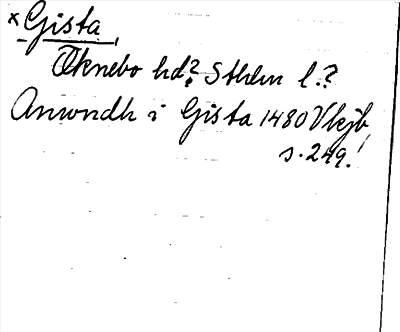 × Gista,
Öknebo hd? Sthlm l.?
Anwndh i Gista 1480 Vkjb,
s. 249.